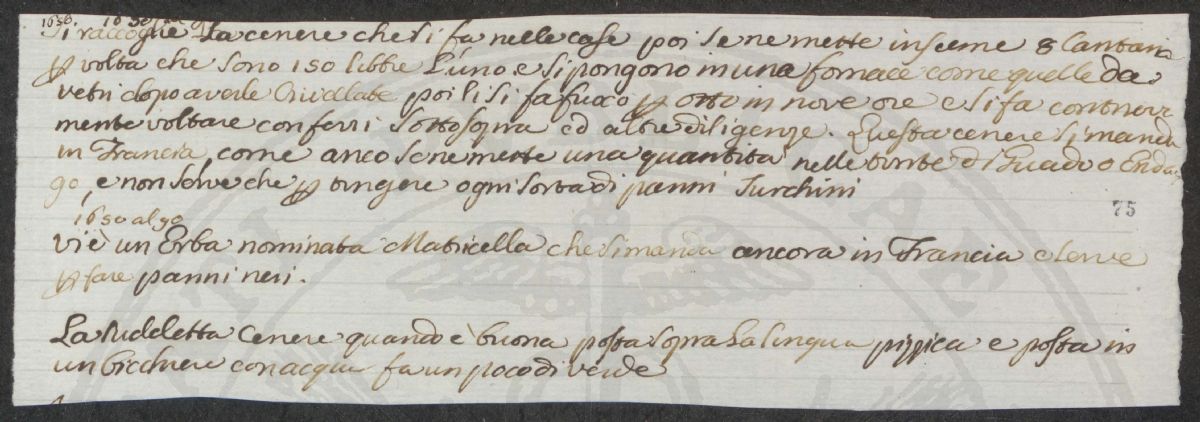 1650. 1650 al 90
Si raccoglie La cenere che si fa nelle case poi se ne mette insieme 8 Cantara
ꝑ volta che sono 150 libbre L'uno e si pongono in una fornace come quelle da
vetri dopo averle Crivellate poi li si fa fuoco ꝑ otto in nove ore e si fa continova
mente voltare con ferri sottosopra ed altre diligenze. Questa cenere si manda
in Francia, come anco se ne mette una quantità nelle tinte di Guado o Enda
go, e non serve che ꝑ tingere ogni sorta di panni Turchini
75
1650 al 90
vi è un Erba nominata Matricella che si manda ancora in Francia e serve
ꝑ fare panni neri.
La sudeletta Cenere quando è buona posta sopra La lingua pizzica e posta in
un bicchiere con acqua fa un poco di verde